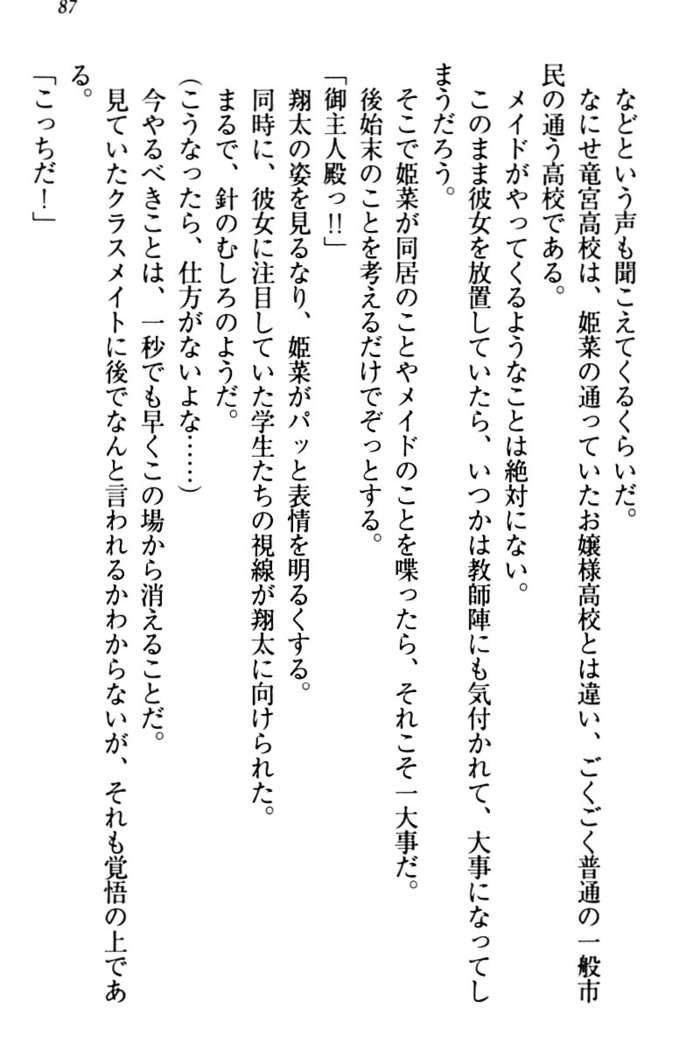 87
などという声も聞こえてくるくらいだ。
なにせ竜宮高校は、姫菜の通っていたお嬢様高校とは違い、ごくごく普通の一般市
民の通う高校である。
メイドがやってくるようなことは絶対にない。
このまま彼女を放置していたら、いつかは教師陣にも気付かれて、大事になってし
まうだろう。
そこで姫菜が同居のことやメイドのことを喋ったら、それこそ一大事だ。
後始末のことを考えるだけでぞっとする。
「御主人殿っ!!」
翔太の姿を見るなり、姫菜がパッと表情を明るくする。
同時に、彼女に注目していた学生たちの視線が翔太に向けられた。
まるで、針のむしろのようだ。
(こうなったら、仕方がないよな……)
今やるべきことは、一秒でも早くこの場から消えることだ。
見ていたクラスメイトに後でなんと言われるかわからないが、それも覚悟の上であ
る。
「こっちだ!」